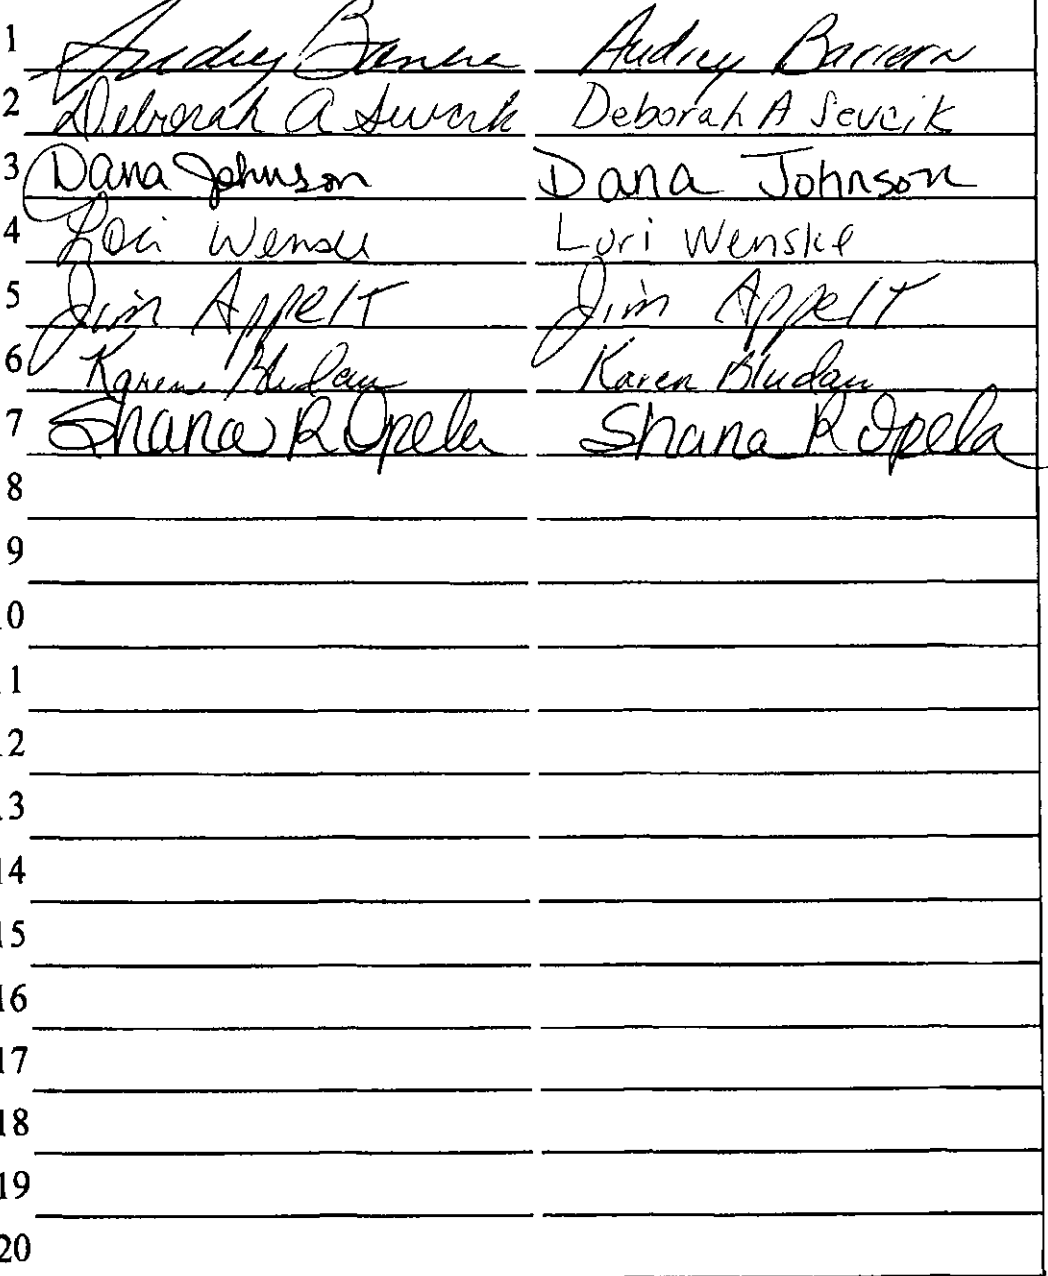 1 Audrey Barrera Audrey Barrera
2 Deborah A Sevcik Deborah A Sevcik
3 Dana Johnson Dana Johnson
4 Lori Wenske Lori Wenske
5 Jim Appelt Jim Appelt
6 Karen Bludau Karen Bludau
7 Shana R Opela Shana R Opela
8
9
10
11
12
13
14
15
16
17
18
19
20